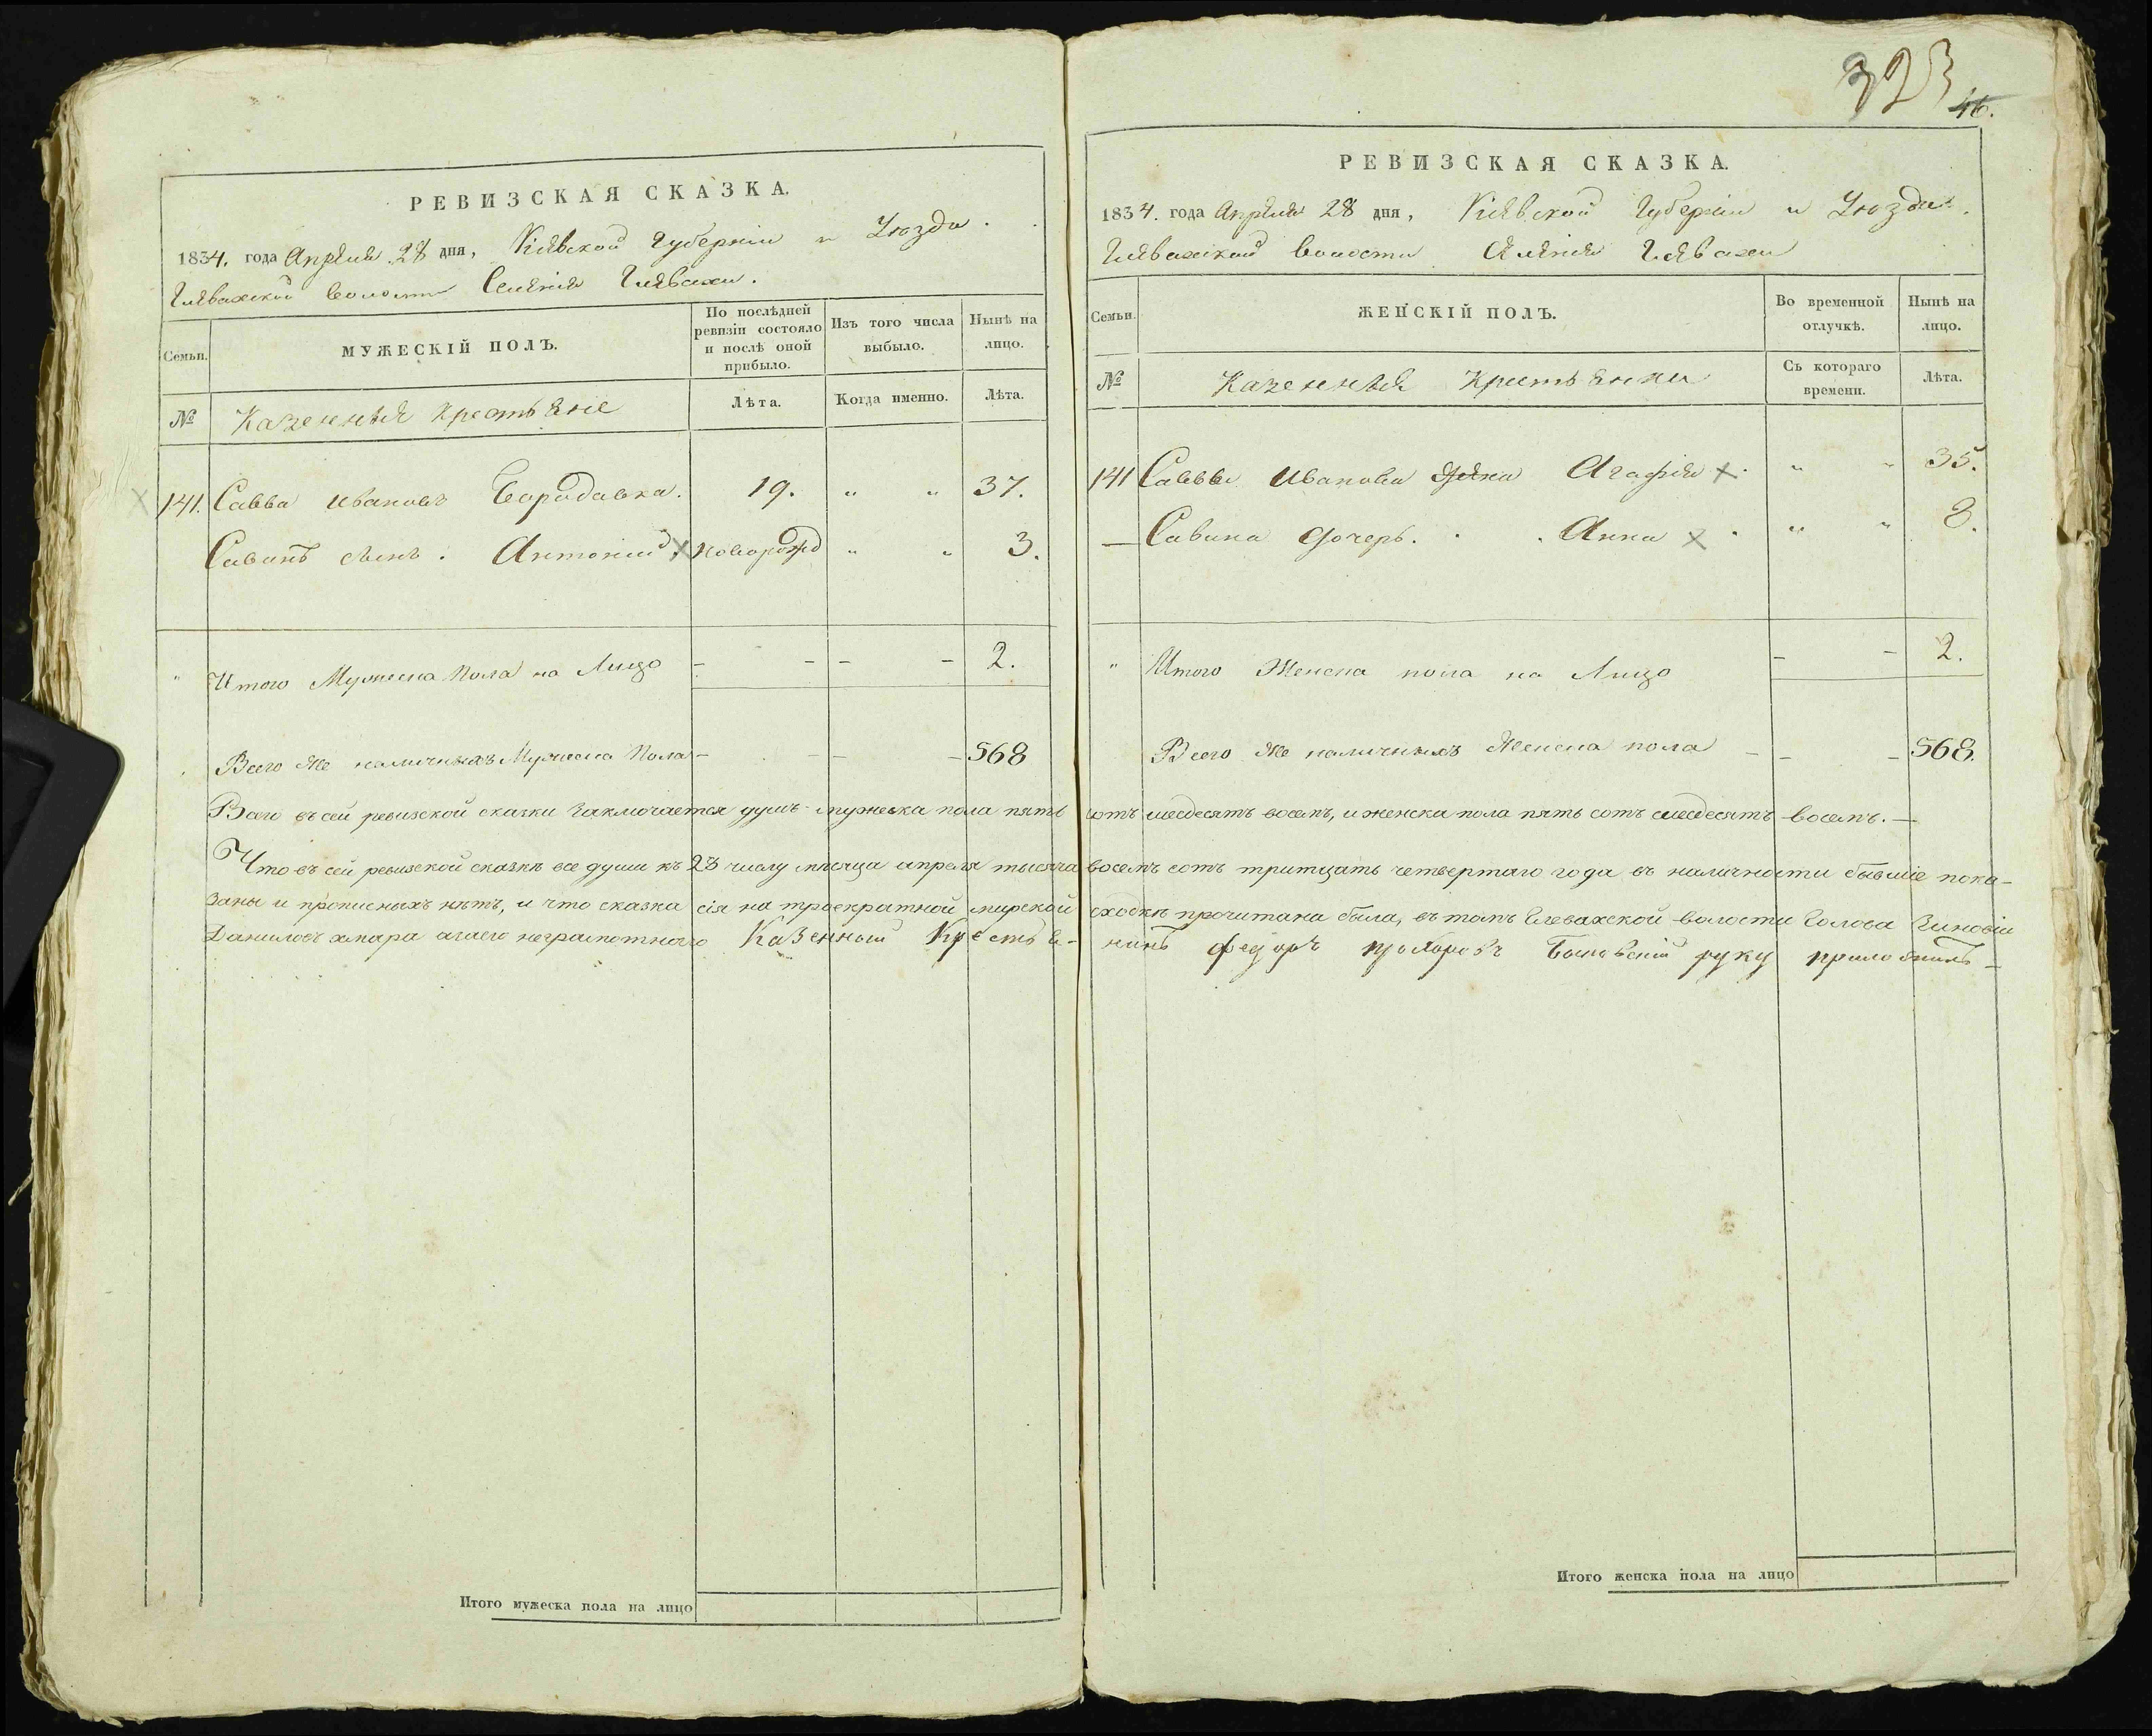 323
46.
РЕВИЗСКАЯ СКАЗКА.
1834. года Апреля 28 дня, Кіевской Губерніи и Уезда.
Глевахской Волости Селенія Глевахи.
Семьи.
МУЖЕСКІЙ ПОЛЪ.
По послѣдней ревизіи состояло и послѣ оной прибыло.
Изъ того числа выбыло.
Нынѣ на лицо.
№ Казенныя Крестьяне
Лѣта.
Когда именно.
Лѣта.
141. Савва Ивановъ Бородавка. 19. „ „ 37.
Савинъ сынъ. Антоній новорожд „ „ 3.
„ Итого Мужеска Пола на Лицо - - - - 2.
Всего же наличныхъ Мужеска Пола - - - - 568
РЕВИЗСКАЯ СКАЗКА.
1834. года Апреля 28 дня, Кіевской Губерніи и Уезда.
Глевахской Волости Селенія Глевахи
Семьи.
ЖЕНСКІЙ ПОЛЪ.
Во временной отлучкѣ.
Нынѣ на лицо.
№ Казенныя Крестьянки
Съ котораго времени.
Лѣта.
141 Саввы Иванова жена Агафія „ „ 35.
— Савина дочерь. Анна „ „ 8.
„ Итого Женска пола на Лицо - - 2.
Всего же наличныхъ Женска пола - - - 568.
Всего въ сей ревизской сказки заключается душъ мужеска пола пять сотъ шесдесятъ восемь, и женска пола пять сотъ шесдесятъ восемь. —
Что въ сей ревизской сказкѣ все души къ 28 числу мѣсяца апреля тысяча восемь сотъ тритцать четвертаго года въ наличности бывшіе пока-
заны и прописныхъ нѣтъ, и что сказка сія на троекратной мирской сходкѣ прочитана была, въ томъ Глевахской волости Голова Зиновій
Даниловъ хмара а за его неграмотного Казенный Крестья- нинъ Федоръ руку приложилъ
Итого мужеска пола на лицо
Итого женска пола на лицо